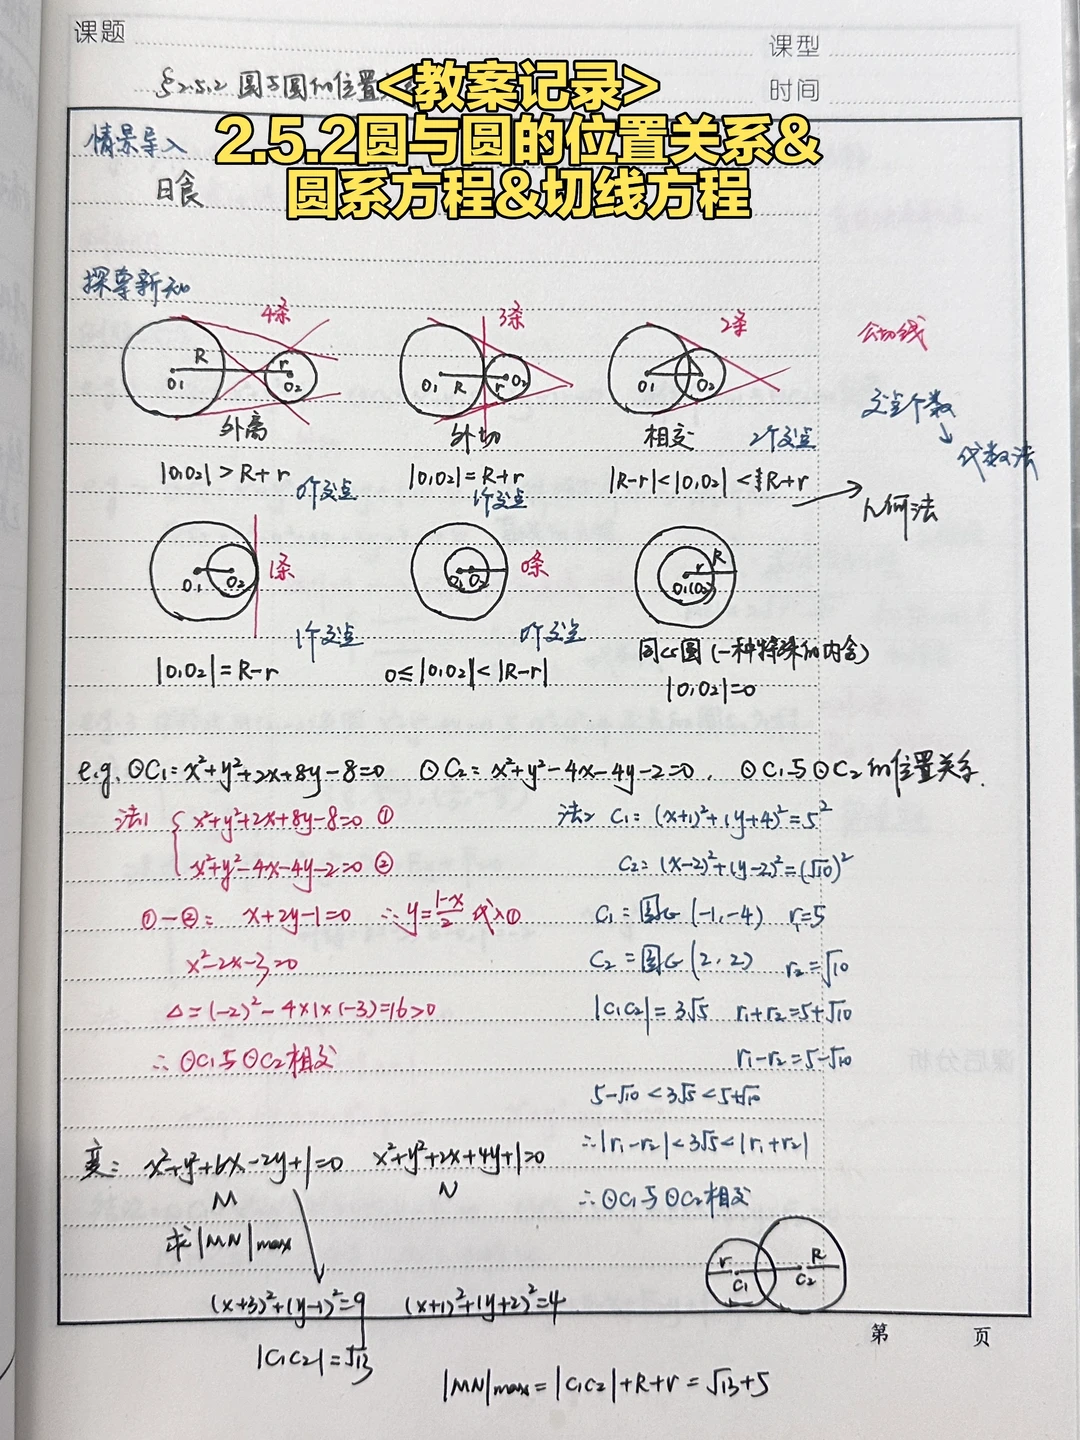 课题
课型
§2.5.2 圆与圆的位置
时间
<教案记录>
2.5.2圆与圆的位置关系&
圆系方程&切线方程
情景导入
日食
探掌新知
4条
3条
2条
公切线
R
r
O₁
O₂
O₁
R
r
O₂
O₁
O₂
交点个数
代数法
外离
外切
相交
2个交点
|O₁O₂|>R+r
0个交点
|O₁O₂|=R+r
1个交点
|R-r|<|O₁O₂|<R+r
几何法
1条
0条
O₁
O₂
O₁
O₂
r
R
O₁(O₂)
1个交点
0个交点
|O₁O₂|=R-r
0≤|O₁O₂|<|R-r|
同心圆(一种特殊的内含)
|O₁O₂|=0
e.g. ⊙C₁=x²+y²+2x+8y-8=0 ⊙C₂=x²+y²-4x-4y-2=0. ⊙C₁与⊙C₂的位置关系.
法1 { x²+y²+2x+8y-8=0 ①
x²+y²-4x-4y-2=0 ②
①-②: x+2y-1=0 ∴y=\frac{1-x}{2} 代入①
x²-2x-3=0
△=(-2)²-4×1×(-3)=16>0
∴⊙C₁与⊙C₂相交
法2 C₁=(x+1)²+(y+4)²=5²
C₂=(x-2)²+(y-2)²=(√10)²
C₁=圆心(-1,-4) r₁=5
C₂=圆心(2,2) r₂=√10
|C₁C₂|=3√5 r₁+r₂=5+√10
r₁-r₂=5-√10
5-√10<3√5<5+√10
∴|r₁-r₂|<3√5<|r₁+r₂|
∴⊙C₁与⊙C₂相交
变: x²+y²+6x-2y+1=0 x²+y²+2x+4y+1=0
M
N
求|MN|max
(x+3)²+(y-1)²=9 (x+1)²+(y+2)²=4
|C₁C₂|=√13
r
C₁
R
C₂
第 页
|MN|max=|C₁C₂|+R+r=√13+5